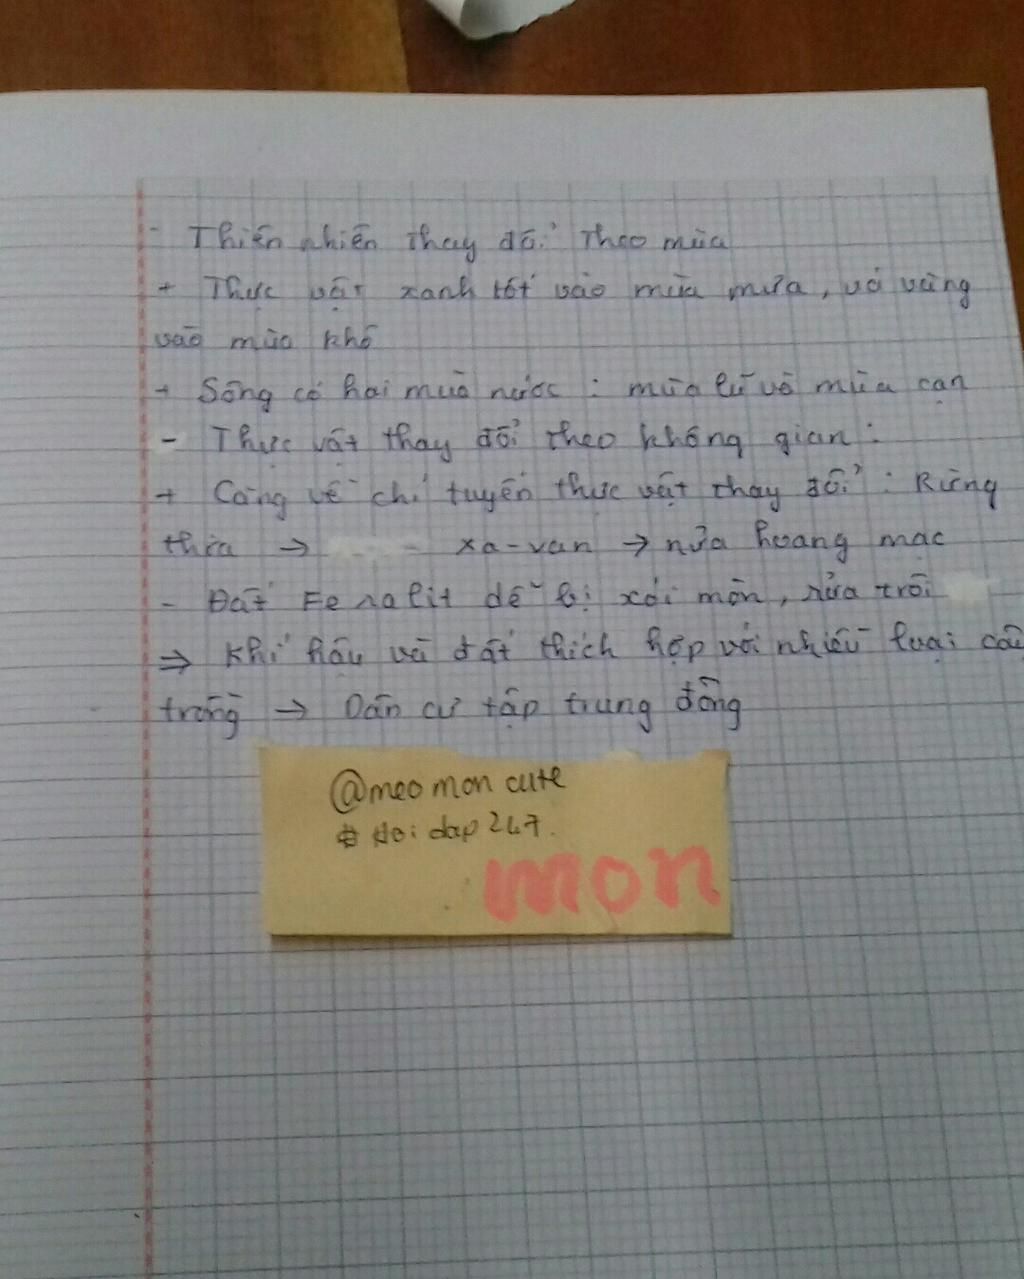 - Thiên nhiên thay đổi theo mùa
+ Thực vật xanh tốt vào mùa mưa, và vàng
vào mùa khô
+ Sông có hai mùa nước : mùa lũ và mùa cạn
- Thực vật thay đổi theo không gian :
+ Càng về chí tuyến thực vật thay đổi : Rừng
thưa → xa-van → nửa hoang mạc
- Đất Feralit dễ bị xói mòn, rửa trôi
⇒ Khí hậu và đất thích hợp với nhiều loại cây
trồng → Dân cư tập trung đông
@meo mon cute
# Hoi dap 247.
mon